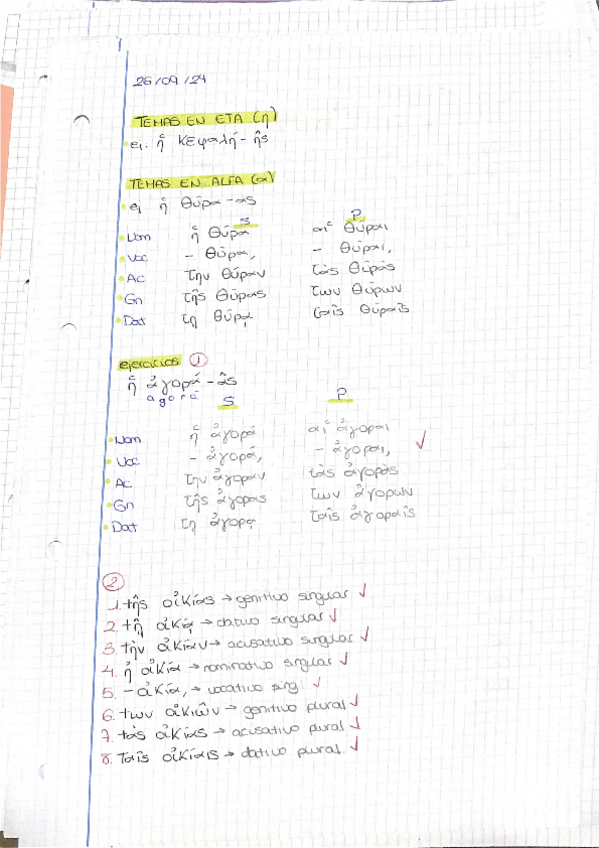 26/09/24
TEMAS EN ETA (η)
ej. ἡ κεφαλή - ῆs
TEMAS EN ALFA (α)
ej ἡ θύρα - αs
S P
Nom ἡ θύρα αἱ θύραι
Voc - θύρα, - θύραι,
Ac την θύραν τὰs θύραs
Gn τῆs θύραs των θύρων
Dat τη θύρᾳ ταῖs θύραῖs
ejercicios ①
ἡ ἀγορά - ᾶs
agorá
S P
Nom ἡ ἀγορά αἱ ἀγοραι
Voc - ἀγορά, - ἀγοραι,
Ac την ἀγοραν τὰs ἀγοράs
Gn τῆs ἀγοραs των ἀγορων
Dat τη ἀγορᾳ ταῖs ἀγοραῖs
②
1. τῆs οἰκίαs → genitivo singular
2. τῆ οἰκίᾳ → dativo singular
3. τὴν οἰκίαν → acusativo singular
4. ἡ οἰκία → nominativo singular
5. - οἰκία, → vocativo sing
6. των οἰκιῶν → genitivo plural
7. τὰs οἰκίαs → acusativo plural
8. ταῖs οἰκίαιs → dativo plural.